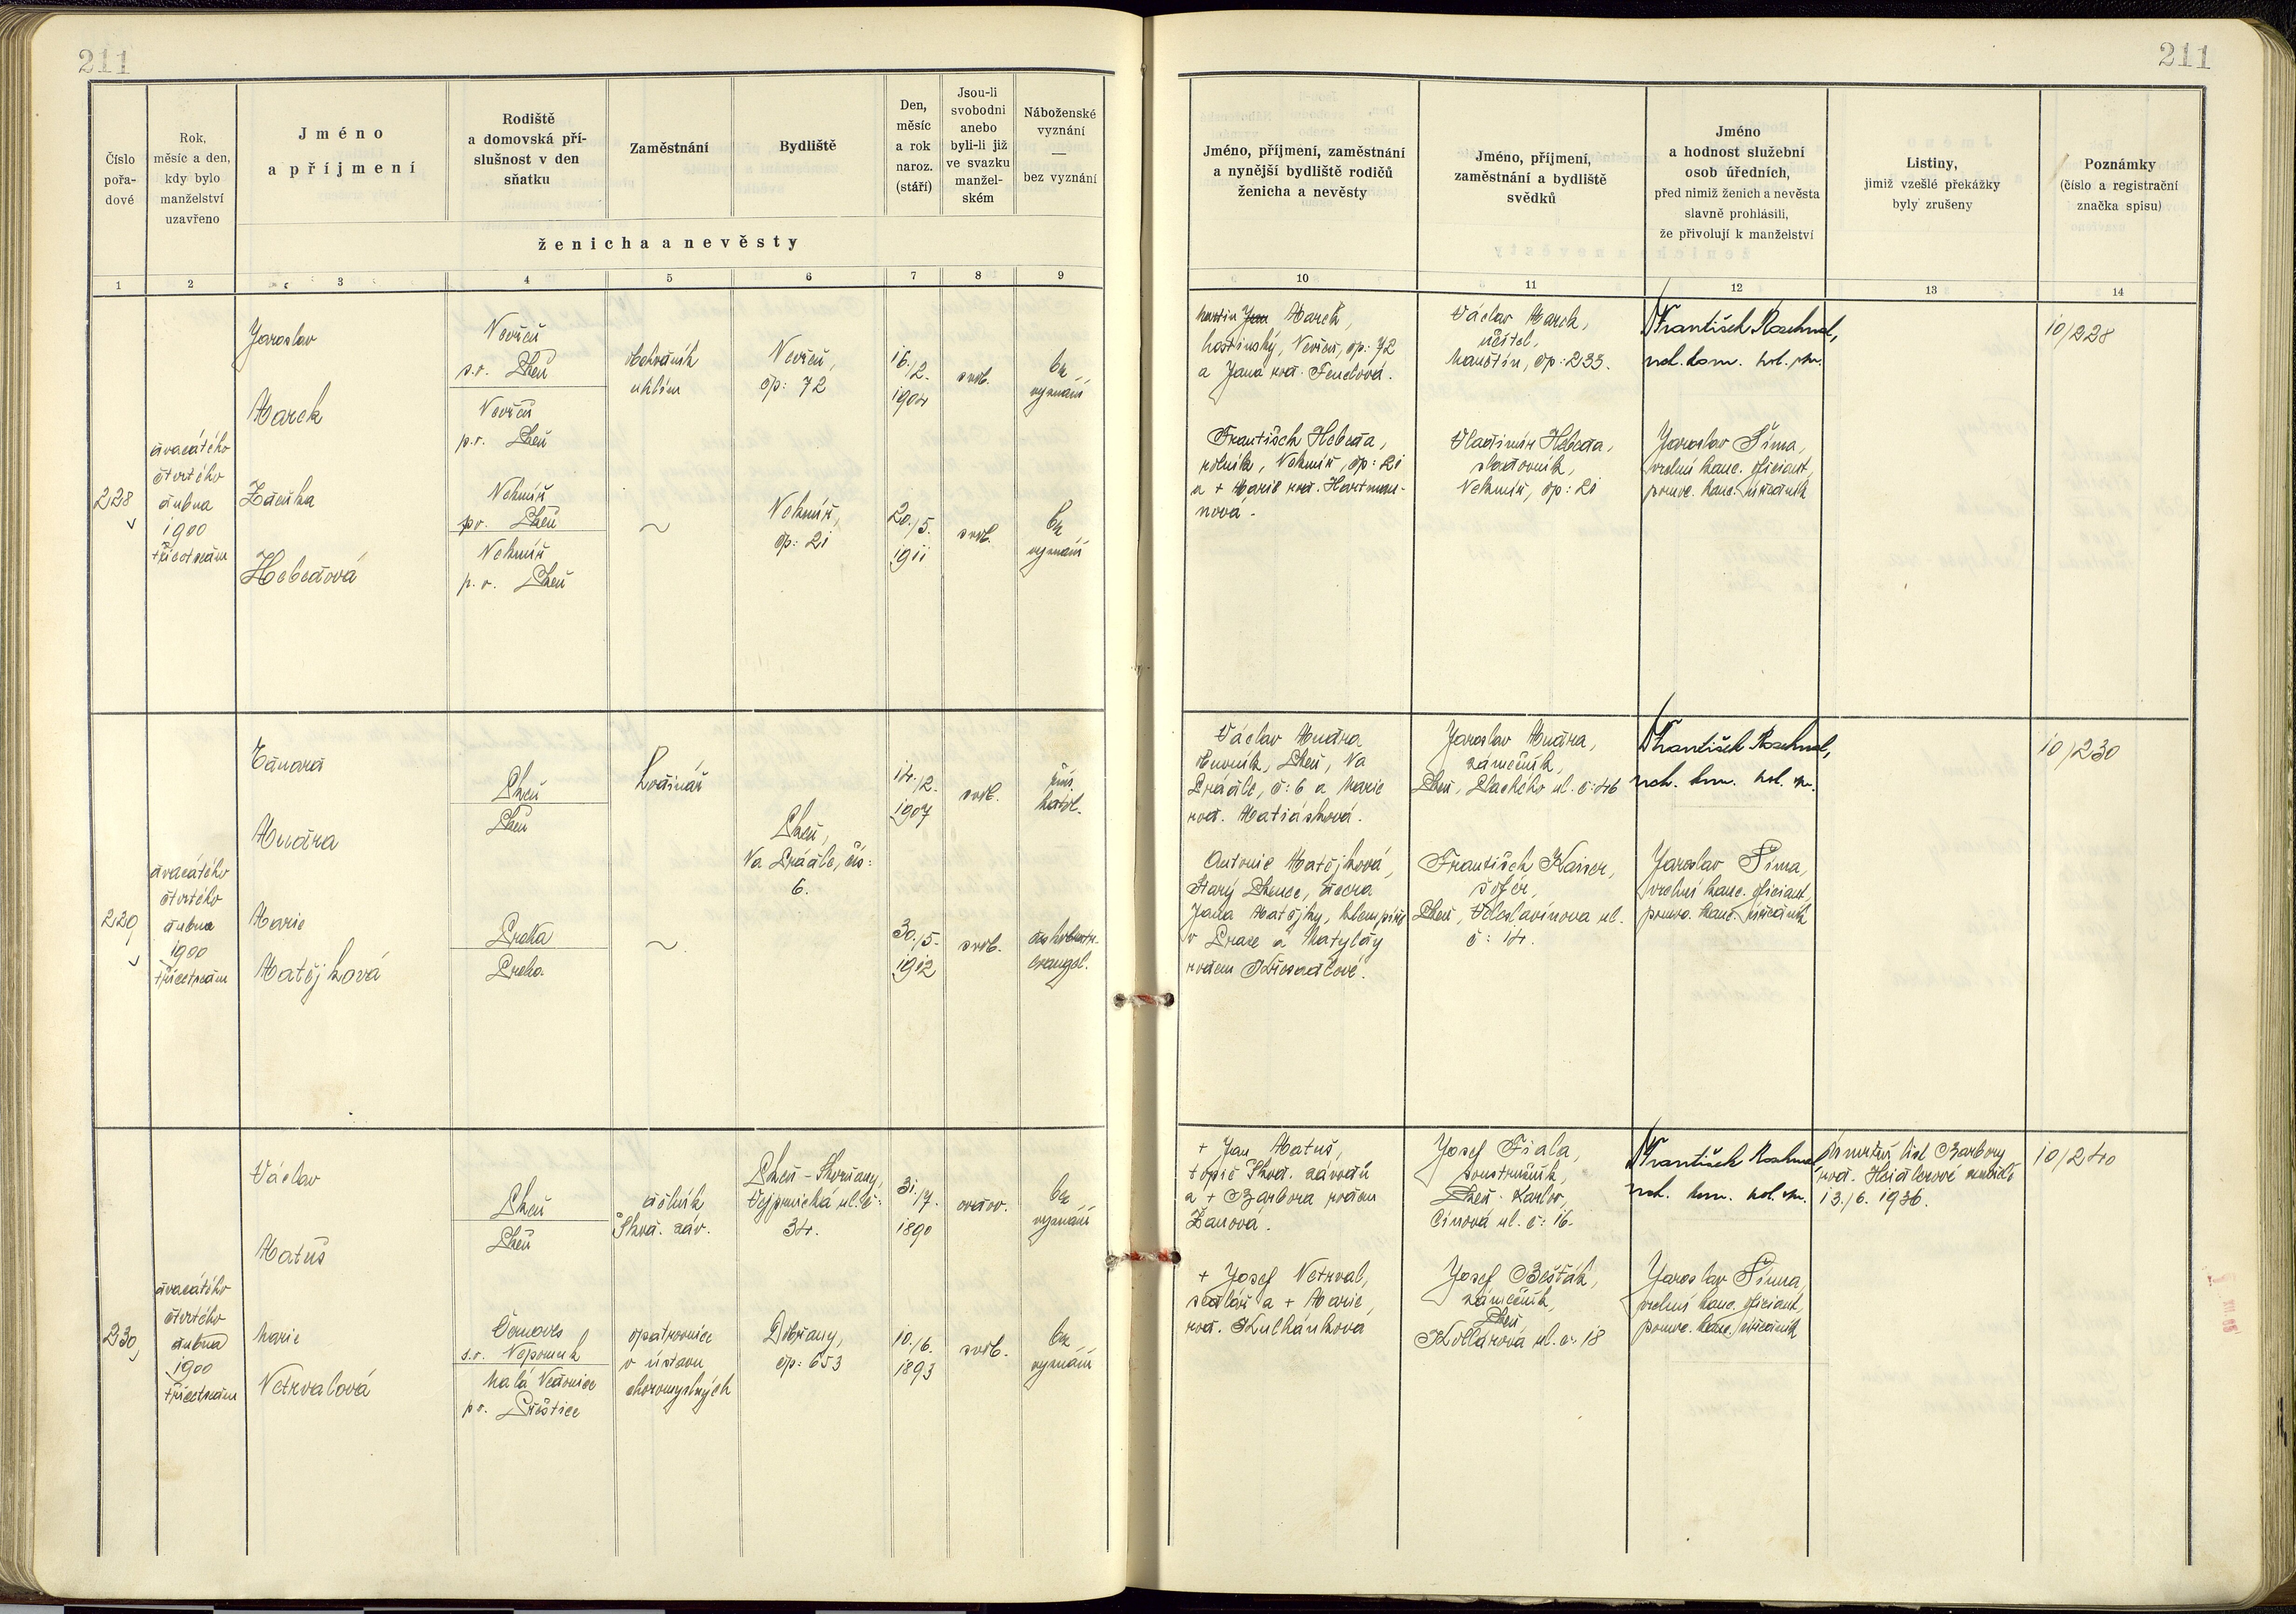 211
211
Číslo
pořa-
dové
Rok,
měsíc a den,
kdy bylo
manželství
uzavřeno
Jméno
a příjmení
Rodiště
a domovská pří-
slušnost v den
sňatku
Zaměstnání
Bydliště
Den,
měsíc
a rok
naroz.
(stáří)
Jsou-li
svobodni
anebo
byli-li již
ve svazku
manžel-
ském
Náboženské
vyznání
—
bez vyznání
ženicha a nevěsty
1
2
3
4
5
6
7
8
9
Jméno, příjmení, zaměstnání
a nynější bydliště rodičů
ženicha a nevěsty
Jméno, příjmení,
zaměstnání a bydliště
svědků
Jméno
a hodnost služební
osob úředních,
před nimiž ženich a nevěsta
slavně prohlásili,
že přivolují k manželství
Listiny,
jimiž vzešlé překážky
byly zrušeny
Poznámky
(číslo a registrační
značka spisu)
10
11
12
13
14
228
dvacátého
čtvrtého
dubna
1900
třicetsedm
Jaroslav
Marek
Zdeňka
Hebedová
Nevřeň
s.o. Plzeň
Nevřeň
p.o. Plzeň
Nekmíř
po. Plzeň
Nekmíř
p.o. Plzeň
obchodník
uhlím
Nevřeň,
čp: 72
Nekmíř,
čp: 21
16./2.
1904
20./5.
1911
svob.
svob.
bez
vyznání
bez
vyznání
Martin Jan Marek,
hostinský, Nevřeň, čp: 72
a Jana roz. Fenclová.
František Hebeda,
rolník, Nekmíř, čp: 21
a + Marie roz. Hartma-
nová.
Václav Marek,
učitel,
Manětín, čp: 233.
Vladimír Hebeda,
sladovník,
Nekmíř, čp: 21
František
Jaroslav Šíma,
vrchní kanc. oficiant,
pomoc. kanc. úředník
10/228
229
dvacátého
čtvrtého
dubna
1900
třicetsedm
Eduard
Mudra
Marie
Matějková
Plzeň
Plzeň
Praha
Praha
Kočinář
Plzeň,
Na Prádle, čís:
6.
14./2.
1907
30./5.
1912
svob.
svob.
řím.
katol.
českobratr.
evangel.
Václav Mudra
Plzeň, Na
Prádle, č: 6 a Marie
roz. Matiásková.
Antonie Matějková,
Starý Plzenec, dcera
Jana Matějky, klempíře
v Praze a Matyldy
rozen
Jaroslav Mudra,
zámečník,
Plzeň, Plachého ul. č: 46
František Kaiser,
šofér,
Plzeň, Veleslavínova ul.
č: 14.
František
Jaroslav Šíma,
vrchní kanc. oficiant,
pomoc. kanc. úředník
10/230
230
dvacátého
čtvrtého
dubna
1900
třicetsedm
Václav
Matuš
Marie
Netrvalová
Plzeň
Plzeň
Černoves
s.o. Nepomuk
Malá Vedrovice
po. Přeštice
dělník
Škod. záv.
opatrovnice
v ústavu
choromyslných
Plzeň-Skvrňany,
Vejprnická ul. č:
34.
Dobřany,
čp: 653
31./7.
1890
10./6.
1893
ovdov.
svob.
bez
vyznání
bez
vyznání
+ Jan Matuš,
topič Škod. závodů
a + Barbora rozen
Žanova.
+ Josef Netrval,
sedlář a + Marie,
roz. Kulhánkova
Josef Fiala,
soustružník,
Plzeň-Karlov,
Cínová ul. č: 16.
Josef Bešťák,
zámečník,
Plzeň,
Kollárova ul. č. 18
František
Jaroslav Šíma,
vrchní kanc. oficiant,
pomoc. kanc. úředník
Úmrtní list Barbory
roz. Heidlerové zemřelé
13./6. 1936.
10/240